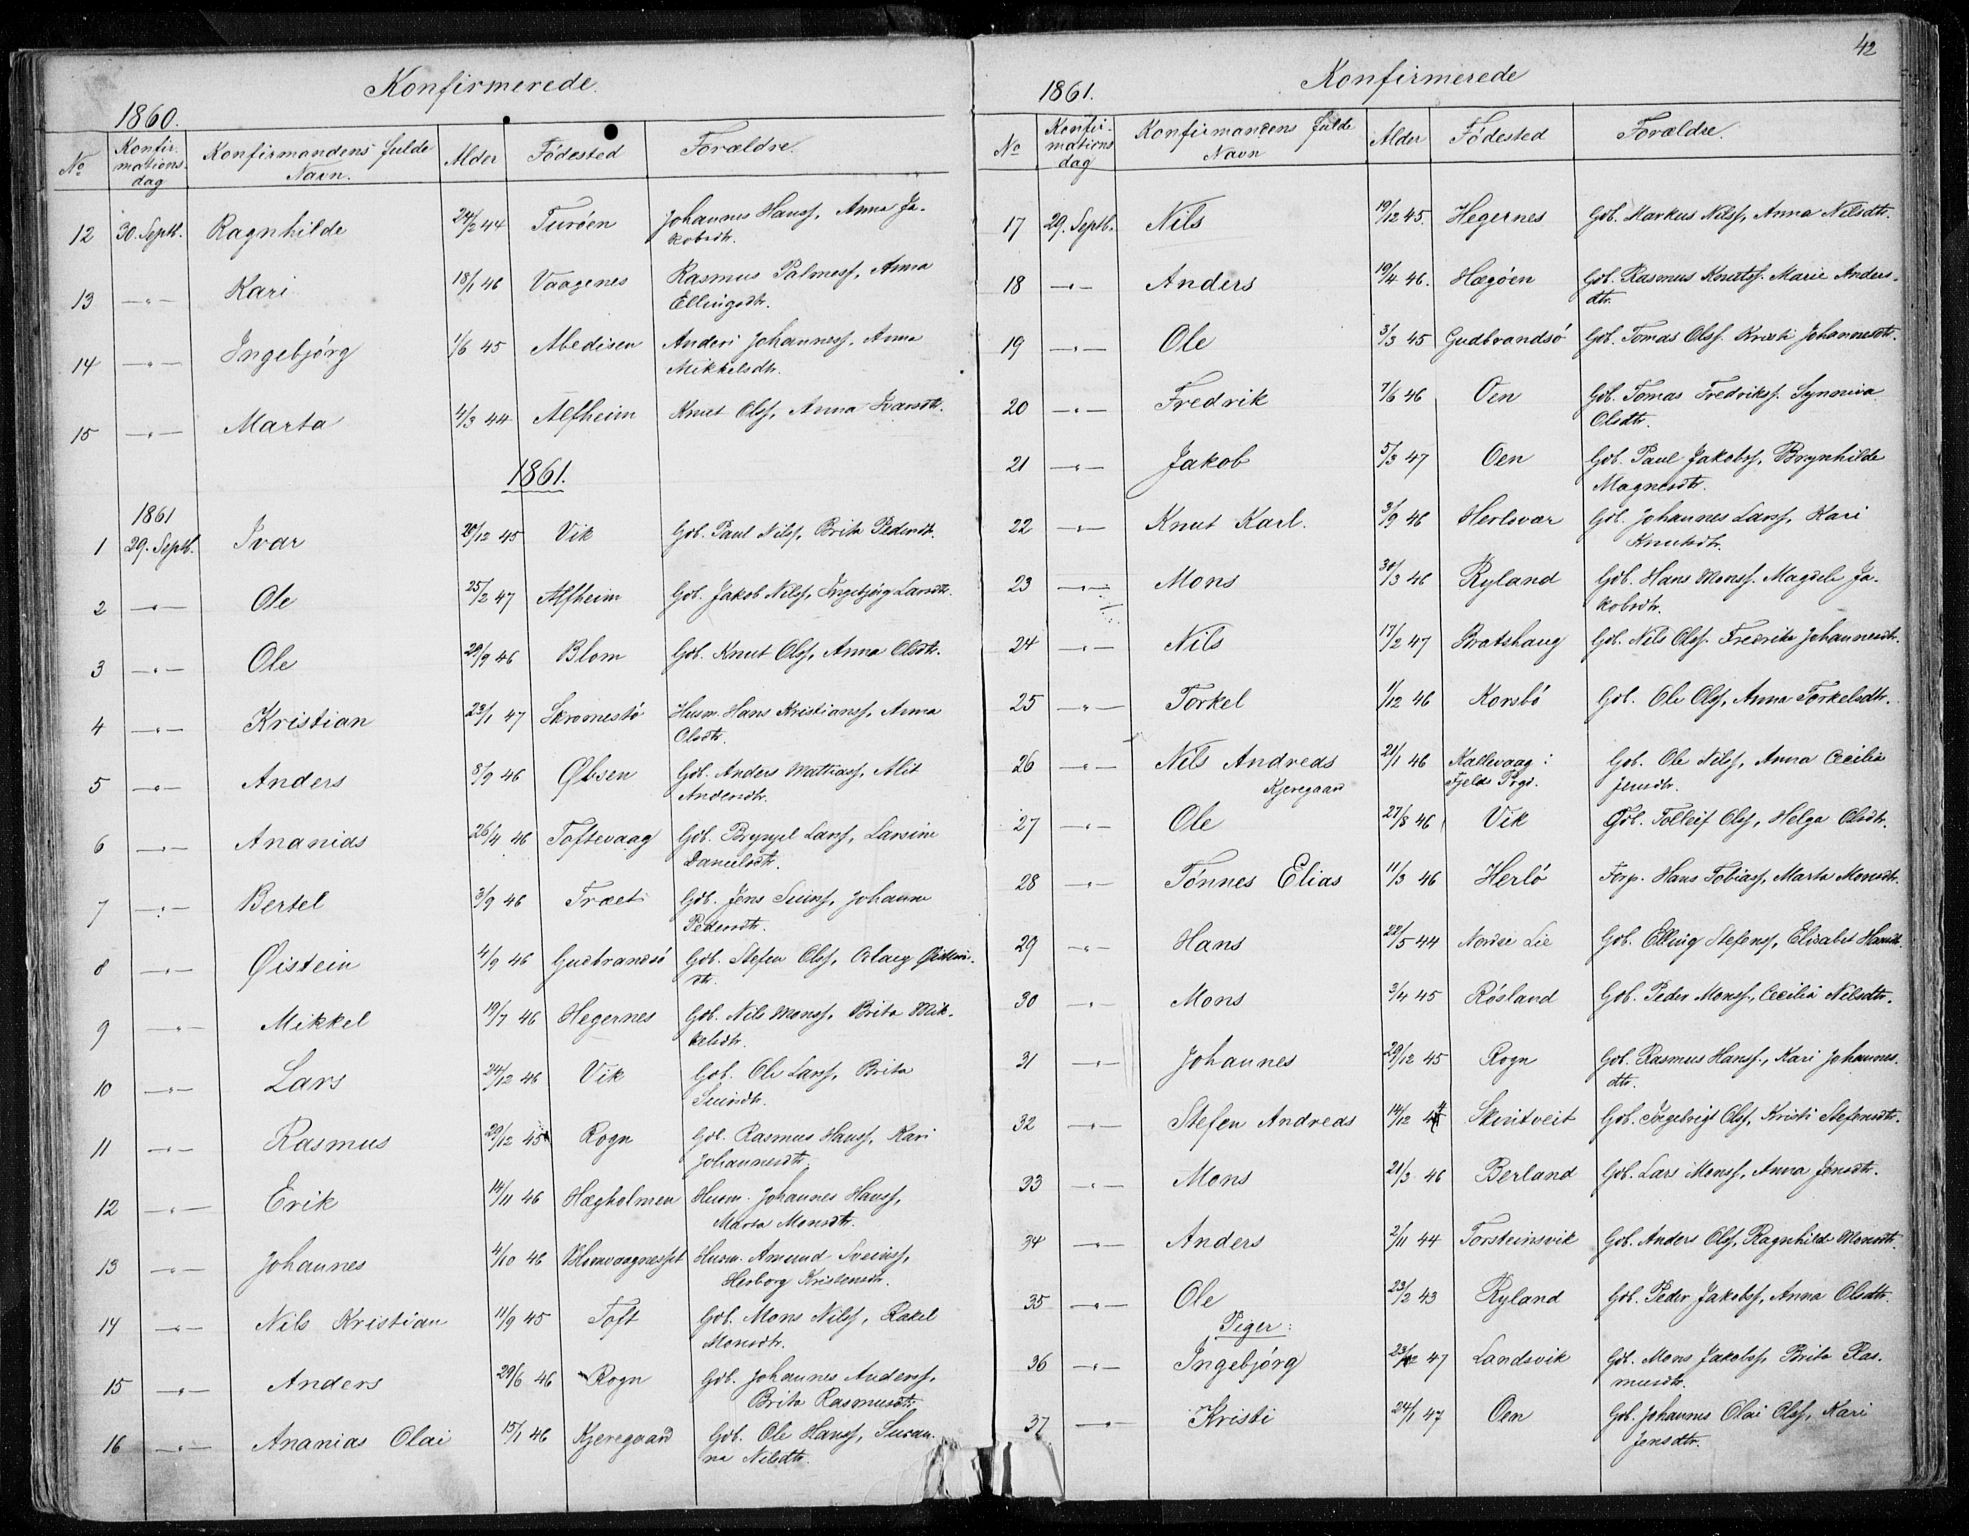 Konfirmerede.
1860.
No
Konfir-
mations-
dag
Konfirmandens fulde
Navn.
Alder
Födested
Forældre.
12 30. Septb. Ragnhilde 24/2 44 Turöen Johannes Hanss, Anna Ja-
kobsdtr.
13 —"— Kari 18/1 46 Vaagenes Rasmus Palmess, Anna
Ellingsdtr.
14 —"— Ingebjörg 1/6 45 Abedisen Anders Johanness, Anna
Mikkelsdtr.
15 —"— Marta 4/3 44 Alfheim Knut Olss, Anna Ivarsdtr.
1861.
1861
1 29. Septb. Ivar 20/12 45 Vik Gdb. Paul Nilss, Brita Pedersdtr.
2 —"— Ole 25/2 47 Alfheim Gdb. Jakob Nilss, Ingebjörg Larsdtr.
3 —"— Ole 29/9 46 Blom Gdb. Knut Olss, Anna Olsdtr.
4 —"— Kristian 23/1 47 Skromestö Husm. Hans Kristianss, Anna
Olsdtr.
5 —"— Anders 8/9 46 Øbsen Gdb. Anders Mathiass, Alit
Andersdtr.
6 —"— Ananias 26/4 46 Toftevaag Gdb. Brynjel Larss, Larsine
Danielsdtr.
7 —"— Bertel 3/9 46 Træet Gdb. Jens Suins, Johanne
Pedersdtr.
8 —"— Øistein 4/9 46 Gudbrandsö Gdb. Stefen Olss, Olaug Øisteins-
dtr.
9 —"— Mikkel 19/7 46 Hegernes Gdb. Nils Monss, Brita Mik-
kelsdtr.
10 —"— Lars 24/12 46 Vik Gdb. Ole Larss, Brita
Suinsdtr.
11 —"— Rasmus 29/12 45 Rogn Gdb. Rasmus Hanss, Kari
Johannesdtr.
12 —"— Erik 14/11 46 Hægholmen Husm. Johannes Hanss,
Marta Monsdtr.
13 —"— Johannes 4/10 46 Blomvaagnesset Husm. Amund Sveinss,
Herborg Kristensdtr.
14 —"— Nils Kristian 11/9 45 Toft Gdb. Mons Nilss, Rakel
Monsdtr.
15 —"— Anders 29/6 46 Rogn Gdb. Johannes Anderss,
Brita Rasmusdtr.
16 —"— Ananias Olai 15/1 46 Kjeregaard Gdb. Ole Hanss, Susan-
na Nilsdtr.
42
Konfirmerede
1861.
No
Konfir-
mations
dag
Konfirmandens fulde
Navn
Alder
Födested
Forældre.
17 29. Septb. Nils 19/12 45. Hegernes Gdb. Markus Nilss, Anna Nilsdtr.
18 —"— Anders 19/4 46. Hægöen Gdb. Rasmus Knutss. Marie Anders-
dtr.
19 —"— Ole 3/3 45 Gudbrandsö Gdb. Tomas Olss. Kristi Johannesdtr.
20 —"— Fredrik 7/6 46 Oen Gdb. Tomas Fredrikss. Synniva
Olsdtr.
21 —"— Jakob 5/3 47 Oen Gdb. Paul Jakobss, Brynhilde
Magnesdtr.
22 —"— Knut Karl. 3/9 46 Herlevær Gdb. Johannes Larss, Kari
Knutsdtr.
23 —"— Mons 30/3 46 Ryland Gdb. Hans Monss. Magdele Ja-
kobsdtr.
24 —"— Nils 17/2 47 Bratshaug Gdb. Nils Olss. Fredrike Johannesdtr.
25 —"— Torkel 1/12 46 Korsbö Gdb. Ole Olss, Anna Torkelsdtr.
26 —"— Nils Andreas
Kjeregaard 21/1 46 Kallevaag i
Fjelds Prgd. Gdb. Ole Nilss, Anna Cecilia
Jensdtr.
27 —"— Ole 27/8 46 Vik Gdb. Tolleif Olss, Helga Olsdtr.
28 —"— Tönnes Elias 11/3 46 Herlö Forp. Hans Tobiass, Marta Monsdtr.
29 —"— Hans 22/5 44 Nordre Lie Gdb. Elling Stefenss, Elisabet Hansdtr.
30 —"— Mons 3/4 45 Rösland Gdb. Peder Monss, Cecilia Nilsdtr.
31 —"— Johannes 29/12 45 Rogn Gdb. Rasmus Hanss., Kari Johannes-
dtr.
32 —"— Stefen Andreas 14/12 44 Skintveit Gdb. Ingebrigt Olss, Kristi Stefensdtr.
33 —"— Mons 21/3 46 Berland Gdb. Lars Monss, Anna Jensdtr.
34 —"— Anders 2/11 44 Torsteinsvik Gdb. Anders Olss, Ragnhilde Monsdtr.
35 —"— Ole 23/2 43 Ryland Gdb. Peder Jakobss, Anna Olsdtr.
Piger:
36 —"— Ingebjörg 23/12 47 Landsvik Gdb. Mons Jakobss, Brita Ras-
musdtr.
37 —"— Kristi 24/1 47 Oen Gdb. Johannes Olai Olss, Kari
Jensdtr.